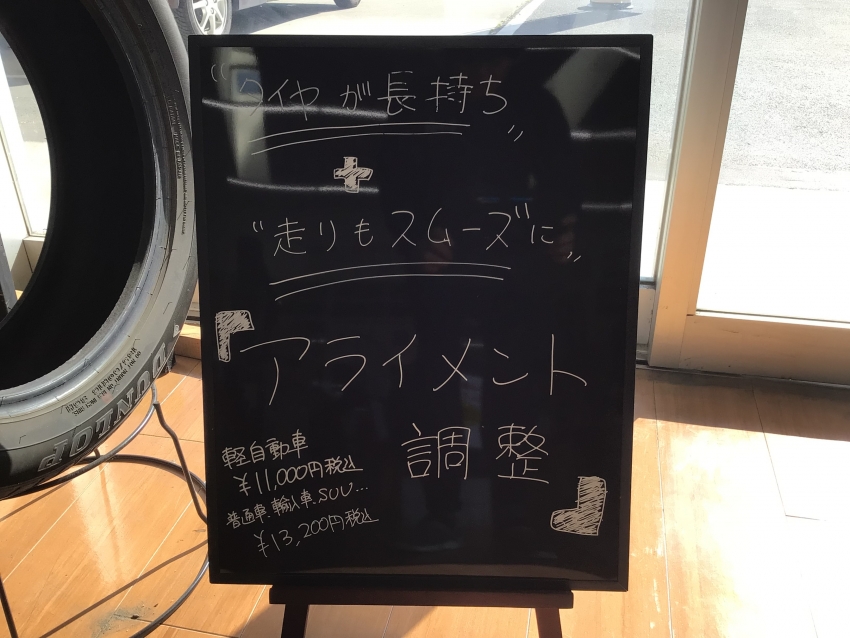 "タイヤが長持ち"
+
"走りもスムーズに"
「アライメント
調整」
軽自動車
¥11,000円税込
普通車、輸入車、SUV...
¥13,200円税込
DUNLOP